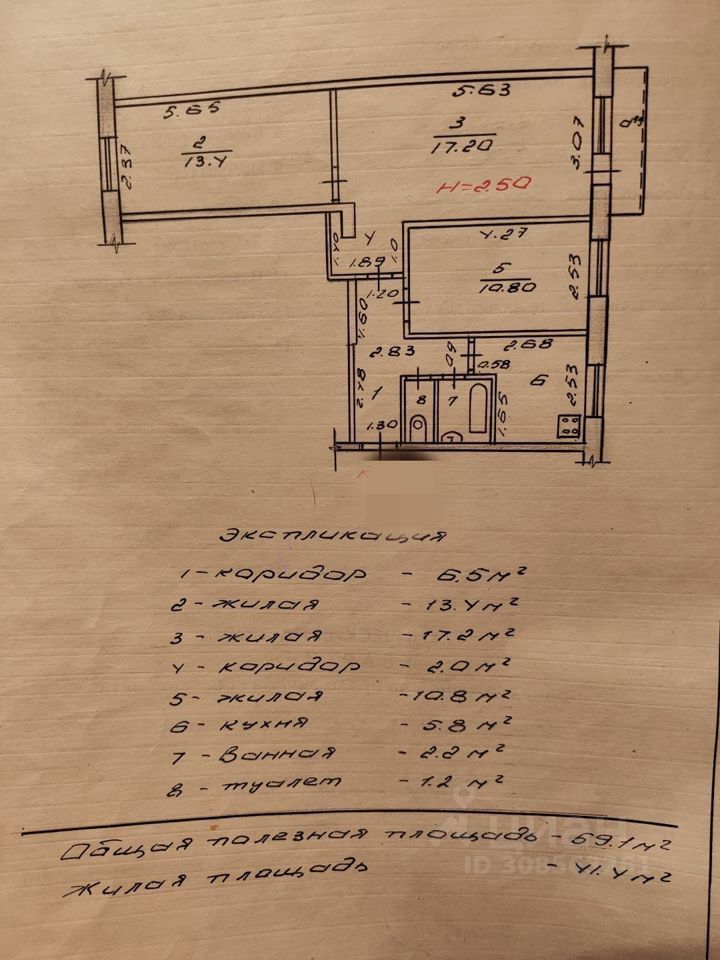 5.65
5.63
2
13.4
2.37
3
17.20
3.07
H=2.50
4
1.89
1.20
4.27
5
10.80
2.53
1.60
2.83
2.68
0.58
60
6
2.53
2.48
1
8
7
1.65
1.30
Экспликация
1 - коридор - 6.5 м²
2 - жилая - 13.4 м²
3 - жилая - 17.2 м²
4 - коридор - 2.0 м²
5 - жилая - 10.8 м²
6 - кухня - 5.8 м²
7 - ванная - 2.2 м²
8 - туалет - 1.2 м²
Общая полезная площадь - 59.1 м²
Жилая площадь - 41.4 м²